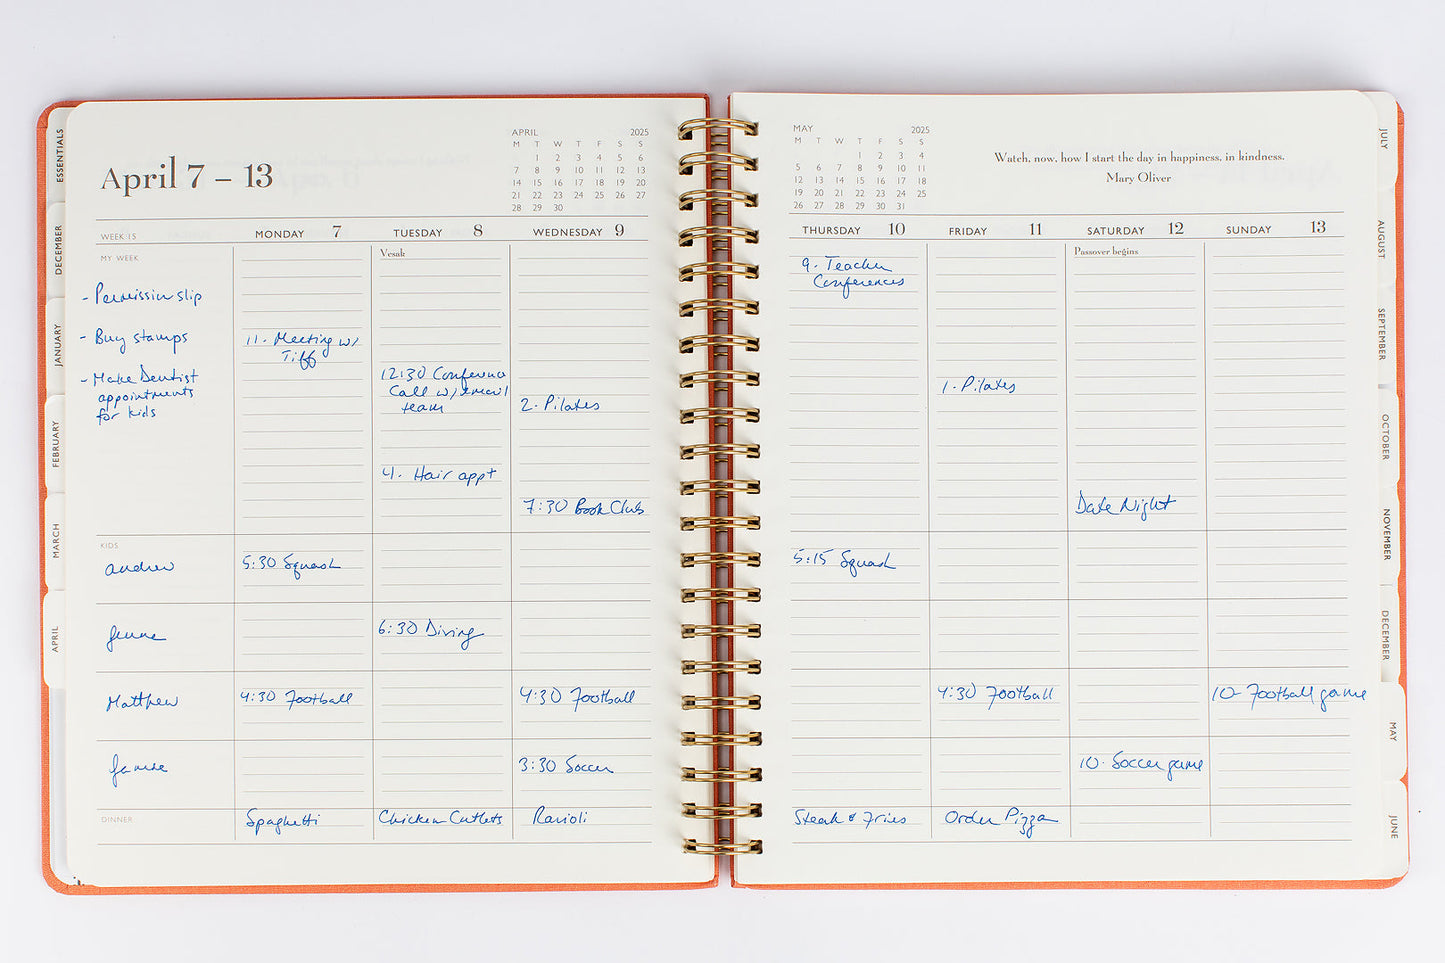 ESSENTIALS
DECEMBER
JANUARY
FEBRUARY
MARCH
APRIL
April 7 – 13
APRIL 2025
M T W T F S S
1 2 3 4 5 6
7 8 9 10 11 12 13
14 15 16 17 18 19 20
21 22 23 24 25 26 27
28 29 30
WEEK IS MONDAY 7 TUESDAY 8 WEDNESDAY 9
MY WEEK
- Permission slip
- Buy stamps
- Make Dentist
appointments
for kids
11. Meeting w/
Tiff
Vesak
12:30 Conference
Call w/ email
team
4. Hair appt
2. Pilates
7:30 Book Club
KIDS
Andrew
5:30 Squash
6:30 Diving
Matthew
4:30 Football
4:30 Football
3:30 Soccer
DINNER
Spaghetti
Chicken Cutlets
Ravioli
MAY 2025
M T W T F S S
1 2 3 4
5 6 7 8 9 10 11
12 13 14 15 16 17 18
19 20 21 22 23 24 25
26 27 28 29 30 31
Watch, now, how I start the day in happiness, in kindness.
Mary Oliver
THURSDAY 10 FRIDAY 11 SATURDAY 12 SUNDAY 13
9. Teacher
Conferences
1. Pilates
Passover begins
Date Night
5:15 Squash
4:30 Football
10- Football game
10. Soccer game
Steak & Fries
Order Pizza
JULY
AUGUST
SEPTEMBER
OCTOBER
NOVEMBER
DECEMBER
MAY
JUNE